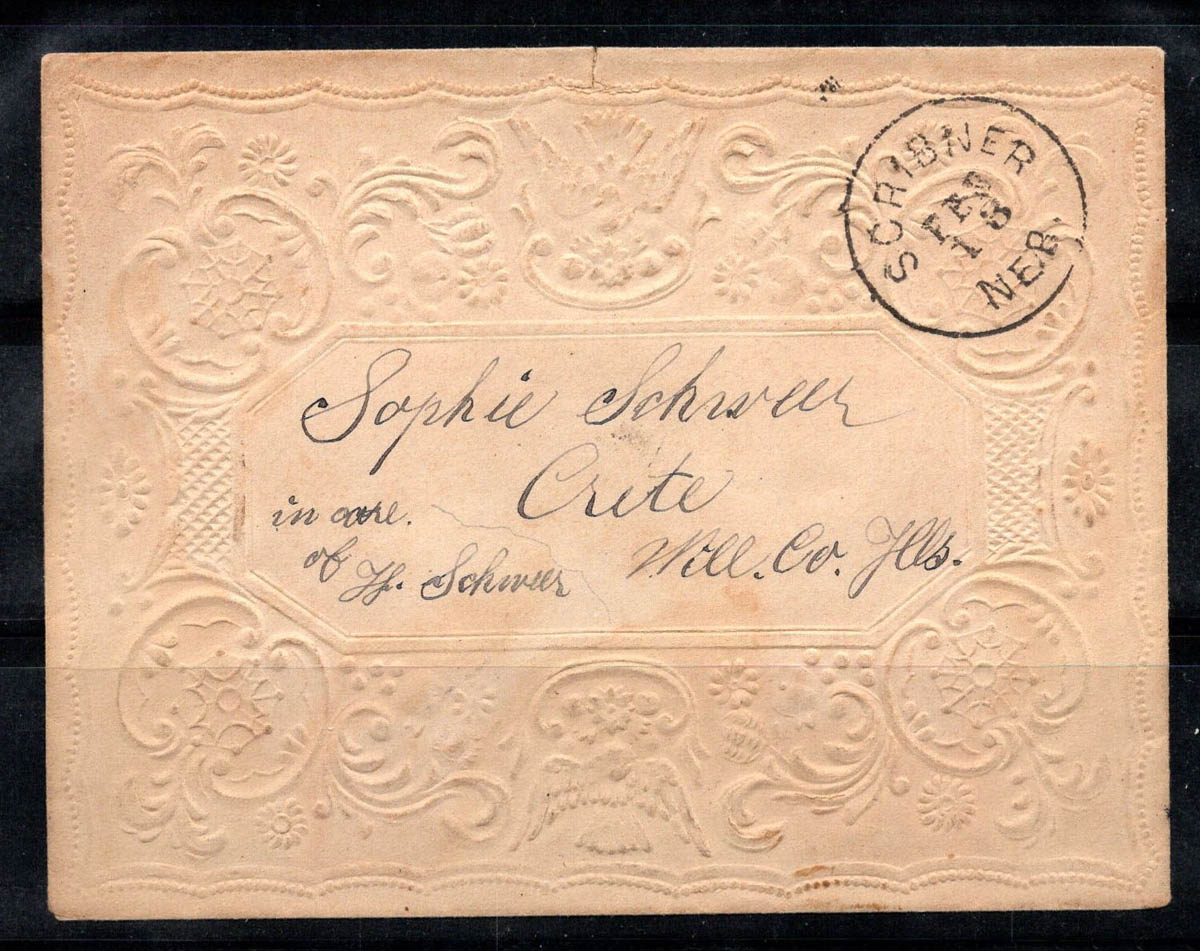 SCRIBNER
FEB
13
NEB.
Sophie Schweer
Crete
in care.
of H. Schweer
Will. Co. Ills.